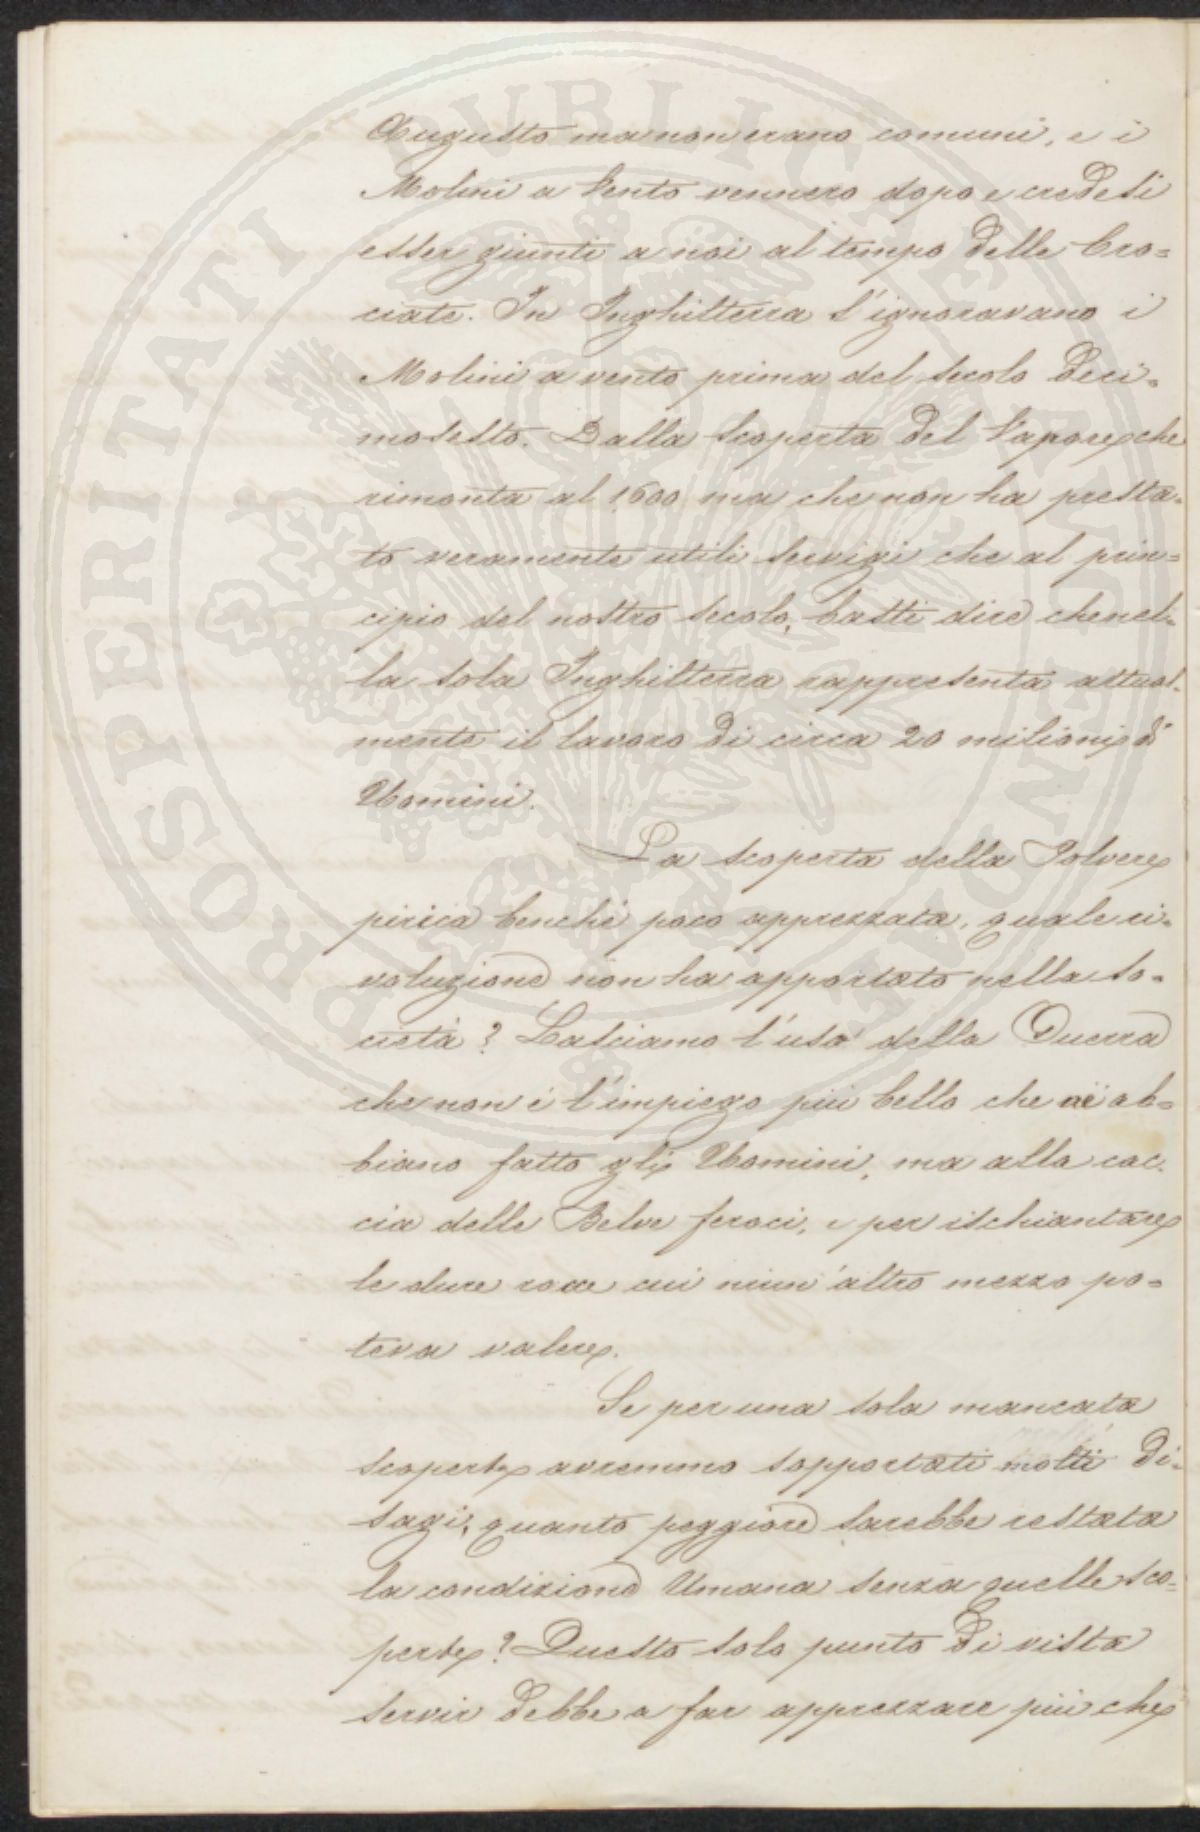 Augusto ma non erano comuni, e i
Molini a Vento vennero dopo e credesi
esser giunti a noi al tempo delle Cro=
ciate. In Inghilterra s'ignoravano i
Molini a vento prima del secolo deci=
mosesto. Dalla scoperta del Vapore che
rimonta al 1600 ma che non ha presta=
to veramente utili servigi che al prin=
cipio del nostro secolo, basti dire che nel=
la sola Inghilterra rappresenta attual=
mente il lavoro di circa 20 milioni di
Uomini.
La scoperta della Polvere
pirica benché poco apprezzata, quale ri=
voluzione non ha apportato nella so=
cietà? Lasciamo l'uso della Guerra
che non è l'impiego più bello che ne ab=
biano fatto gli Uomini, ma alla cac=
cia delle Belve feroci, e per ischiantare
le dure rocce cui niun'altro mezzo po=
teva valere.
Se per una sola mancata
scoperta avremmo sopportati molti di=
sagi, quanto peggiore sarebbe restata
la condizione Umana senza quelle sco=
perte? Questo solo punto di vista
servir debbe a far apprezzare più che
PROSPERITATI PUBLICAE AUGENDAE